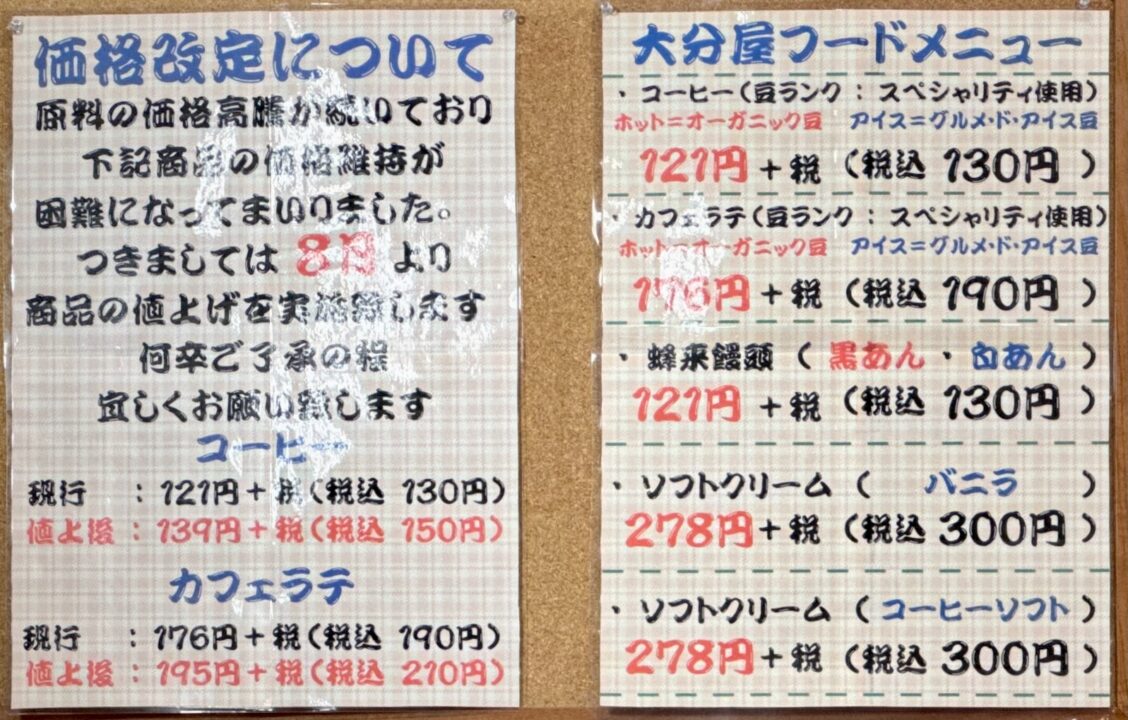 価格改定について
原料の価格高騰が続いており
下記商品の価格維持が
困難になってまいりました。
つきましては 8月 より
商品の値上げを実施致します
何卒ご了承の程
宜しくお願い致します
コーヒー
現行 : 121円+税(税込 130円)
値上後 : 139円+税(税込 150円)
カフェラテ
現行 : 176円+税(税込 190円)
値上後 : 195円+税(税込 210円)
大分屋フードメニュー
・コーヒー(豆ランク : スペシャリティ使用)
ホット=オーガニック豆 アイス=グルメ・ド・アイス豆
121円+税 (税込 130円 )
・カフェラテ(豆ランク : スペシャリティ使用)
ホット=オーガニック豆 アイス=グルメ・ド・アイス豆
176円+税 (税込 190円 )
・蜂来饅頭 ( 黒あん ・ 白あん )
121円+税 (税込 130円 )
・ソフトクリーム ( バニラ )
278円+税 (税込 300円 )
・ソフトクリーム (コーヒーソフト)
278円+税 (税込 300円 )